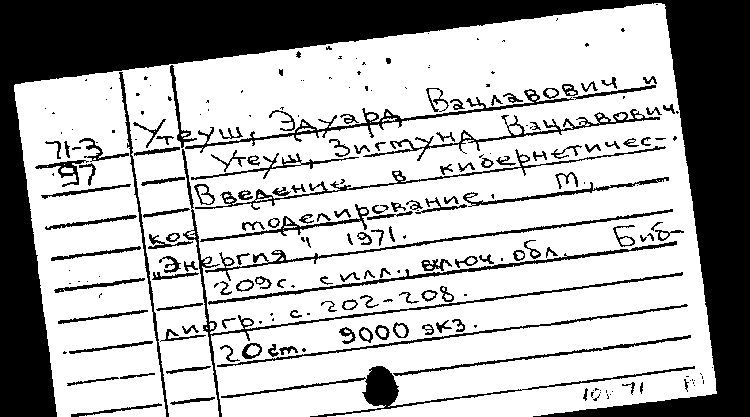 71-3
97
Утеуш, Эдуард Вацлавович и
Утеуш, Зигмунд Вацлавович.
Введение в кибернетичес-
кое моделирование. М.,
"Энергия", 1971.
209 с. с илл., включ. обл. Биб-
лиогр.: с. 202-208.
20 см. 9000 экз.
71